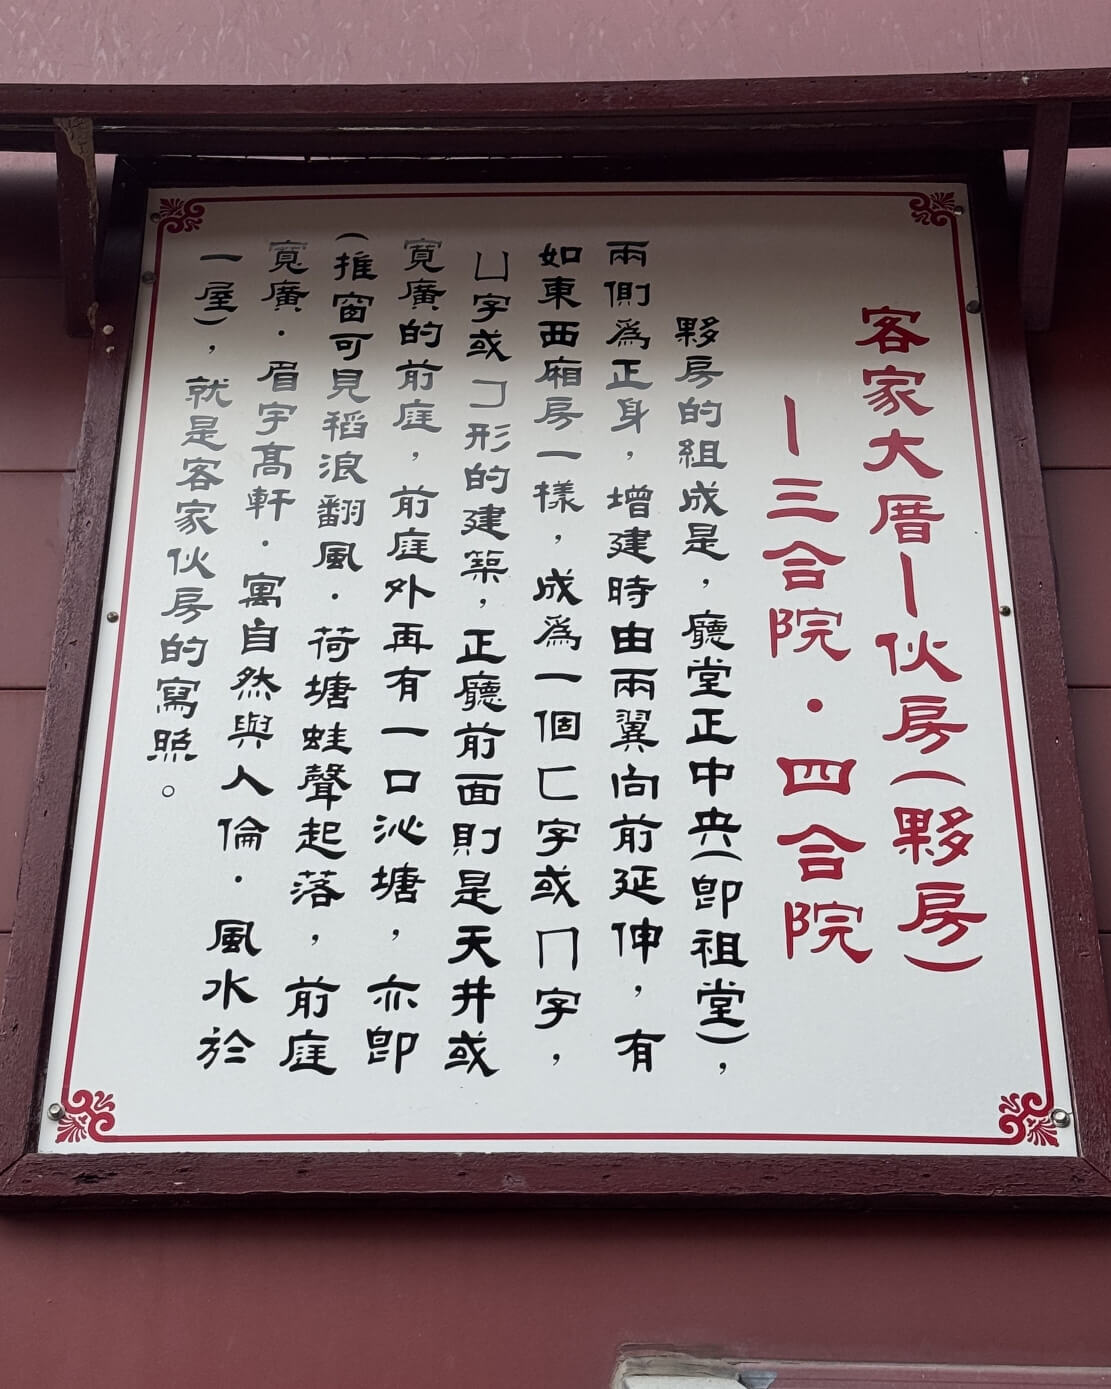 客家大厝－伙房(夥房)
－三合院．四合院
夥房的組成是，廳堂正中央(即祖堂)，
兩側為正身，增建時由兩翼向前延伸，有
如東西廂房一樣，成為一個匚字或冂字，
凵字或㇆形的建築，正廳前面則是天井或
寬廣的前庭，前庭外再有一口沁塘，亦即
(推窗可見稻浪翻風．荷塘蛙聲起落，前庭
寬廣．眉宇高軒．寓自然與人倫．風水於
一屋)，就是客家伙房的寫照。